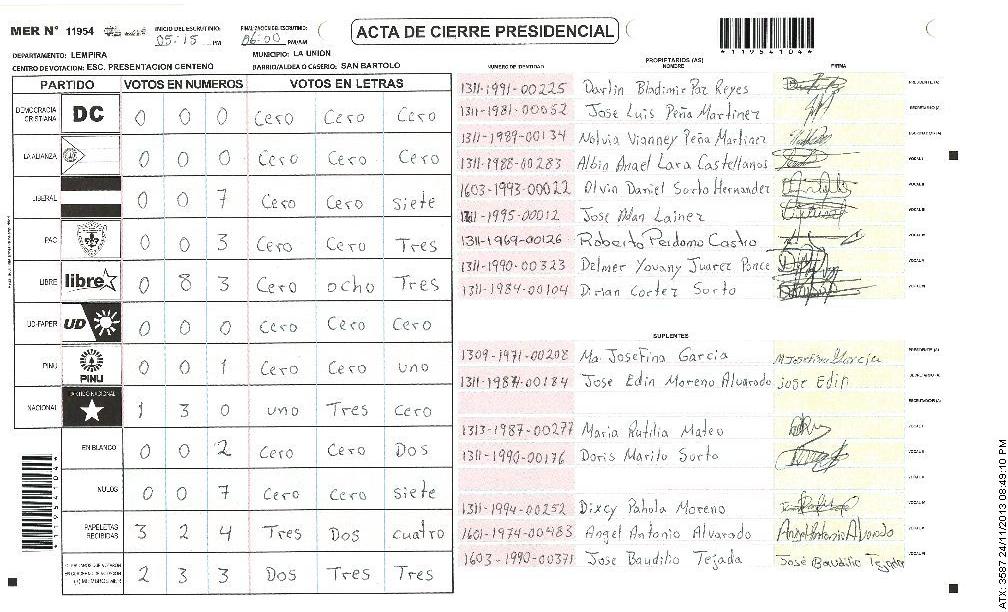 MER Nº 11954 INICIO DEL ESCRUTINIO: 05:15 PM FINALIZACION DEL ESCRUTINIO: 06:00 PM/AM
ACTA DE CIERRE PRESIDENCIAL
*11954104*
DEPARTAMENTO: LEMPIRA MUNICIPIO: LA UNION
CENTRO DE VOTACION: ESC. PRESENTACION CENTENO BARRIO/ALDEA O CASERIO: SAN BARTOLO
PARTIDO VOTOS EN NUMEROS VOTOS EN LETRAS
DEMOCRACIA CRISTIANA DC 0 0 0 Cero Cero Cero
LA ALIANZA 0 0 0 Cero Cero Cero
LIBERAL 0 0 7 Cero Cero siete
PAC 0 0 3 Cero Cero Tres
LIBRE libre 0 8 3 Cero ocho Tres
UD-FAPER UD 0 0 0 Cero Cero Cero
PINU PINU 0 0 1 Cero Cero uno
NACIONAL PARTIDO NACIONAL 1 3 0 uno Tres Cero
EN BLANCO 0 0 2 Cero Cero Dos
NULOS 0 0 7 Cero Cero siete
PAPELETAS RECIBIDAS 3 2 4 Tres Dos cuatro
2 3 3 Dos Tres Tres
*11954104*
PROPIETARIOS (AS)
NUMERO DE IDENTIDAD NOMBRE FIRMA
1311-1991-00225 Darlin Bladimir Paz Reyes PRESIDENTE (A)
1311-1981-00052 Jose Luis Peña Martinez SECRETARIO (A)
1311-1989-00134 Nolvia Vianney Peña Martinez ESCRUTADOR (A)
1311-1988-00283 Albin Anael Lara Castellanos VOCAL I
1603-1993-00022 Alvin Daniel Sorto Hernandez VOCAL II
1311-1995-00012 Jose Adan Lainez VOCAL III
1311-1969-00126 Roberto Perdomo Castro
1311-1990-00323 Delmer Yovany Juarez Ponce
1311-1984-00104 Dirian Cortez Sorto
SUPLENTES
1309-1971-00208 Ma. Josefina Garcia M Josefina Garcia PRESIDENTE (A)
1311-1987-00184 Jose Edin Moreno Alvarado Jose Edin SECRETARIO (A)
ESCRUTADOR (A)
1313-1987-00277 Maria Rutilia Mateo VOCAL I
1311-1990-00176 Doris Marito Sorto VOCAL II
1311-1994-00252 Dixcy Pahola Moreno
1601-1974-00483 Angel Antonio Alvarado Angel Antonio Alvarado
1603-1990-00371 Jose Baudilio Tejada José Baudilio Tejada
ATX: 3587 24/11/2013 08:49:10 PM